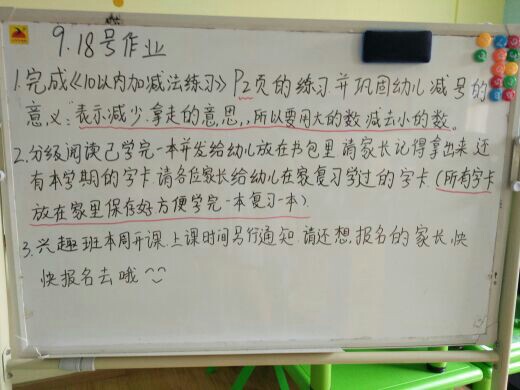 9.18号作业
1.完成《10以内加减法练习》P2页的练习.并巩固幼儿减号的
意义:表示减少.拿走的意思,所以要用大的数减去小的数。
2.分级阅读已学完一本并发给幼儿放在书包里请家长记得拿出来.还
有本学期的字卡请各位家长给幼儿在家复习学过的字卡.(所有字卡
放在家里保存好方便学完一本复习一本)
3.兴趣班本周开课.上课时间另行通知.请还想.报名的家长.快
快报名去哦^^